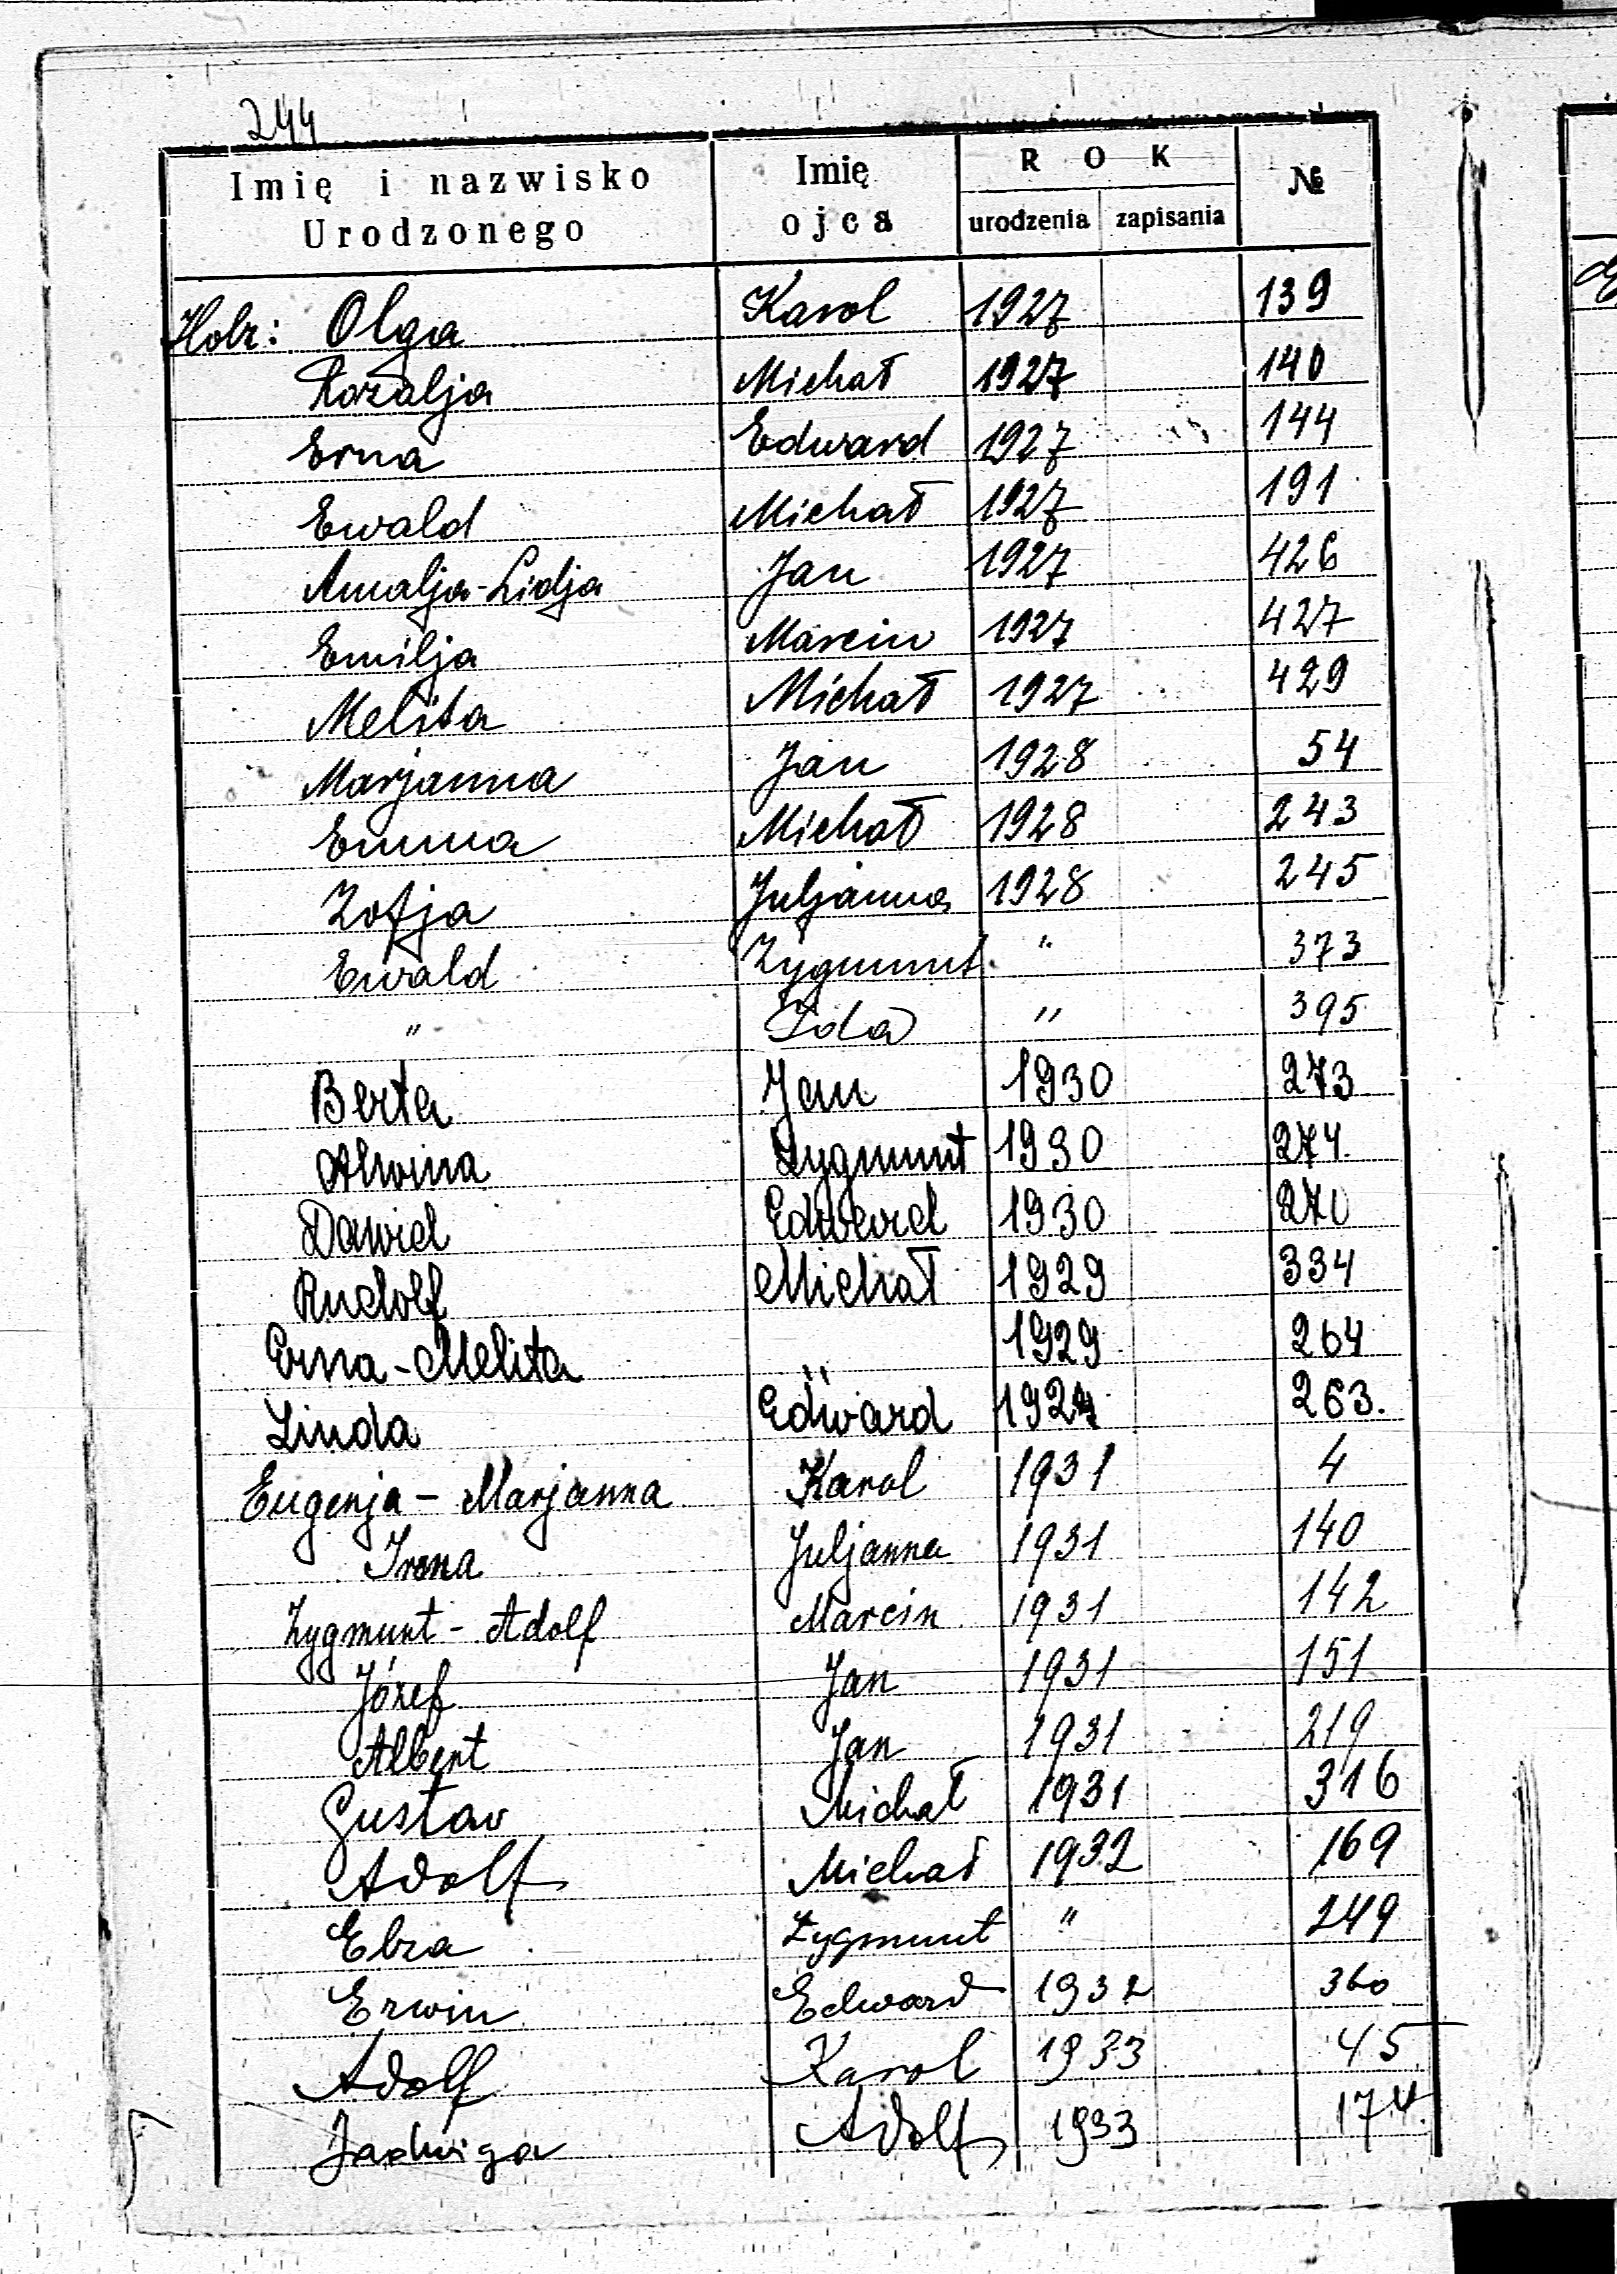 244
Imię i nazwisko Urodzonego Imię ojca ROK urodzenia zapisania №
Holz: Olga Karol 1927 139
Rozalja Michał 1927 140
Erna Edward 1927 144
Ewald Michał 1927 191
Amalja-Lidja Jan 1927 426
Emilja Marcin 1927 427
Melita Michał 1927 429
Marjanna Jan 1928 54
Emma Michał 1928 243
Zofja Juljanna 1928 245
Ewald Zygmunt " 373
" Ida " 395
Berta Jan 1930 273
Alwina Zygmunt 1930 274.
Dawid Edward 1930 270
Rudolf Michał 1929 334
Erna-Melita " 1929 264
Linda Edward 263.
Eugenja - Marjanna Karol 1931 4
Irena Juljanna 1931 140
Zygmunt - Adolf Marcin 1931 142
Józef Jan 1931 151
Albert Jan 1931 219
Gustaw Michał 1931 316
Adolf Michał 1932 169
Zygmunt " 249
Erwin Edward 1932 360
Adolf Karol 1933 45
Jadwiga Adolf 1933